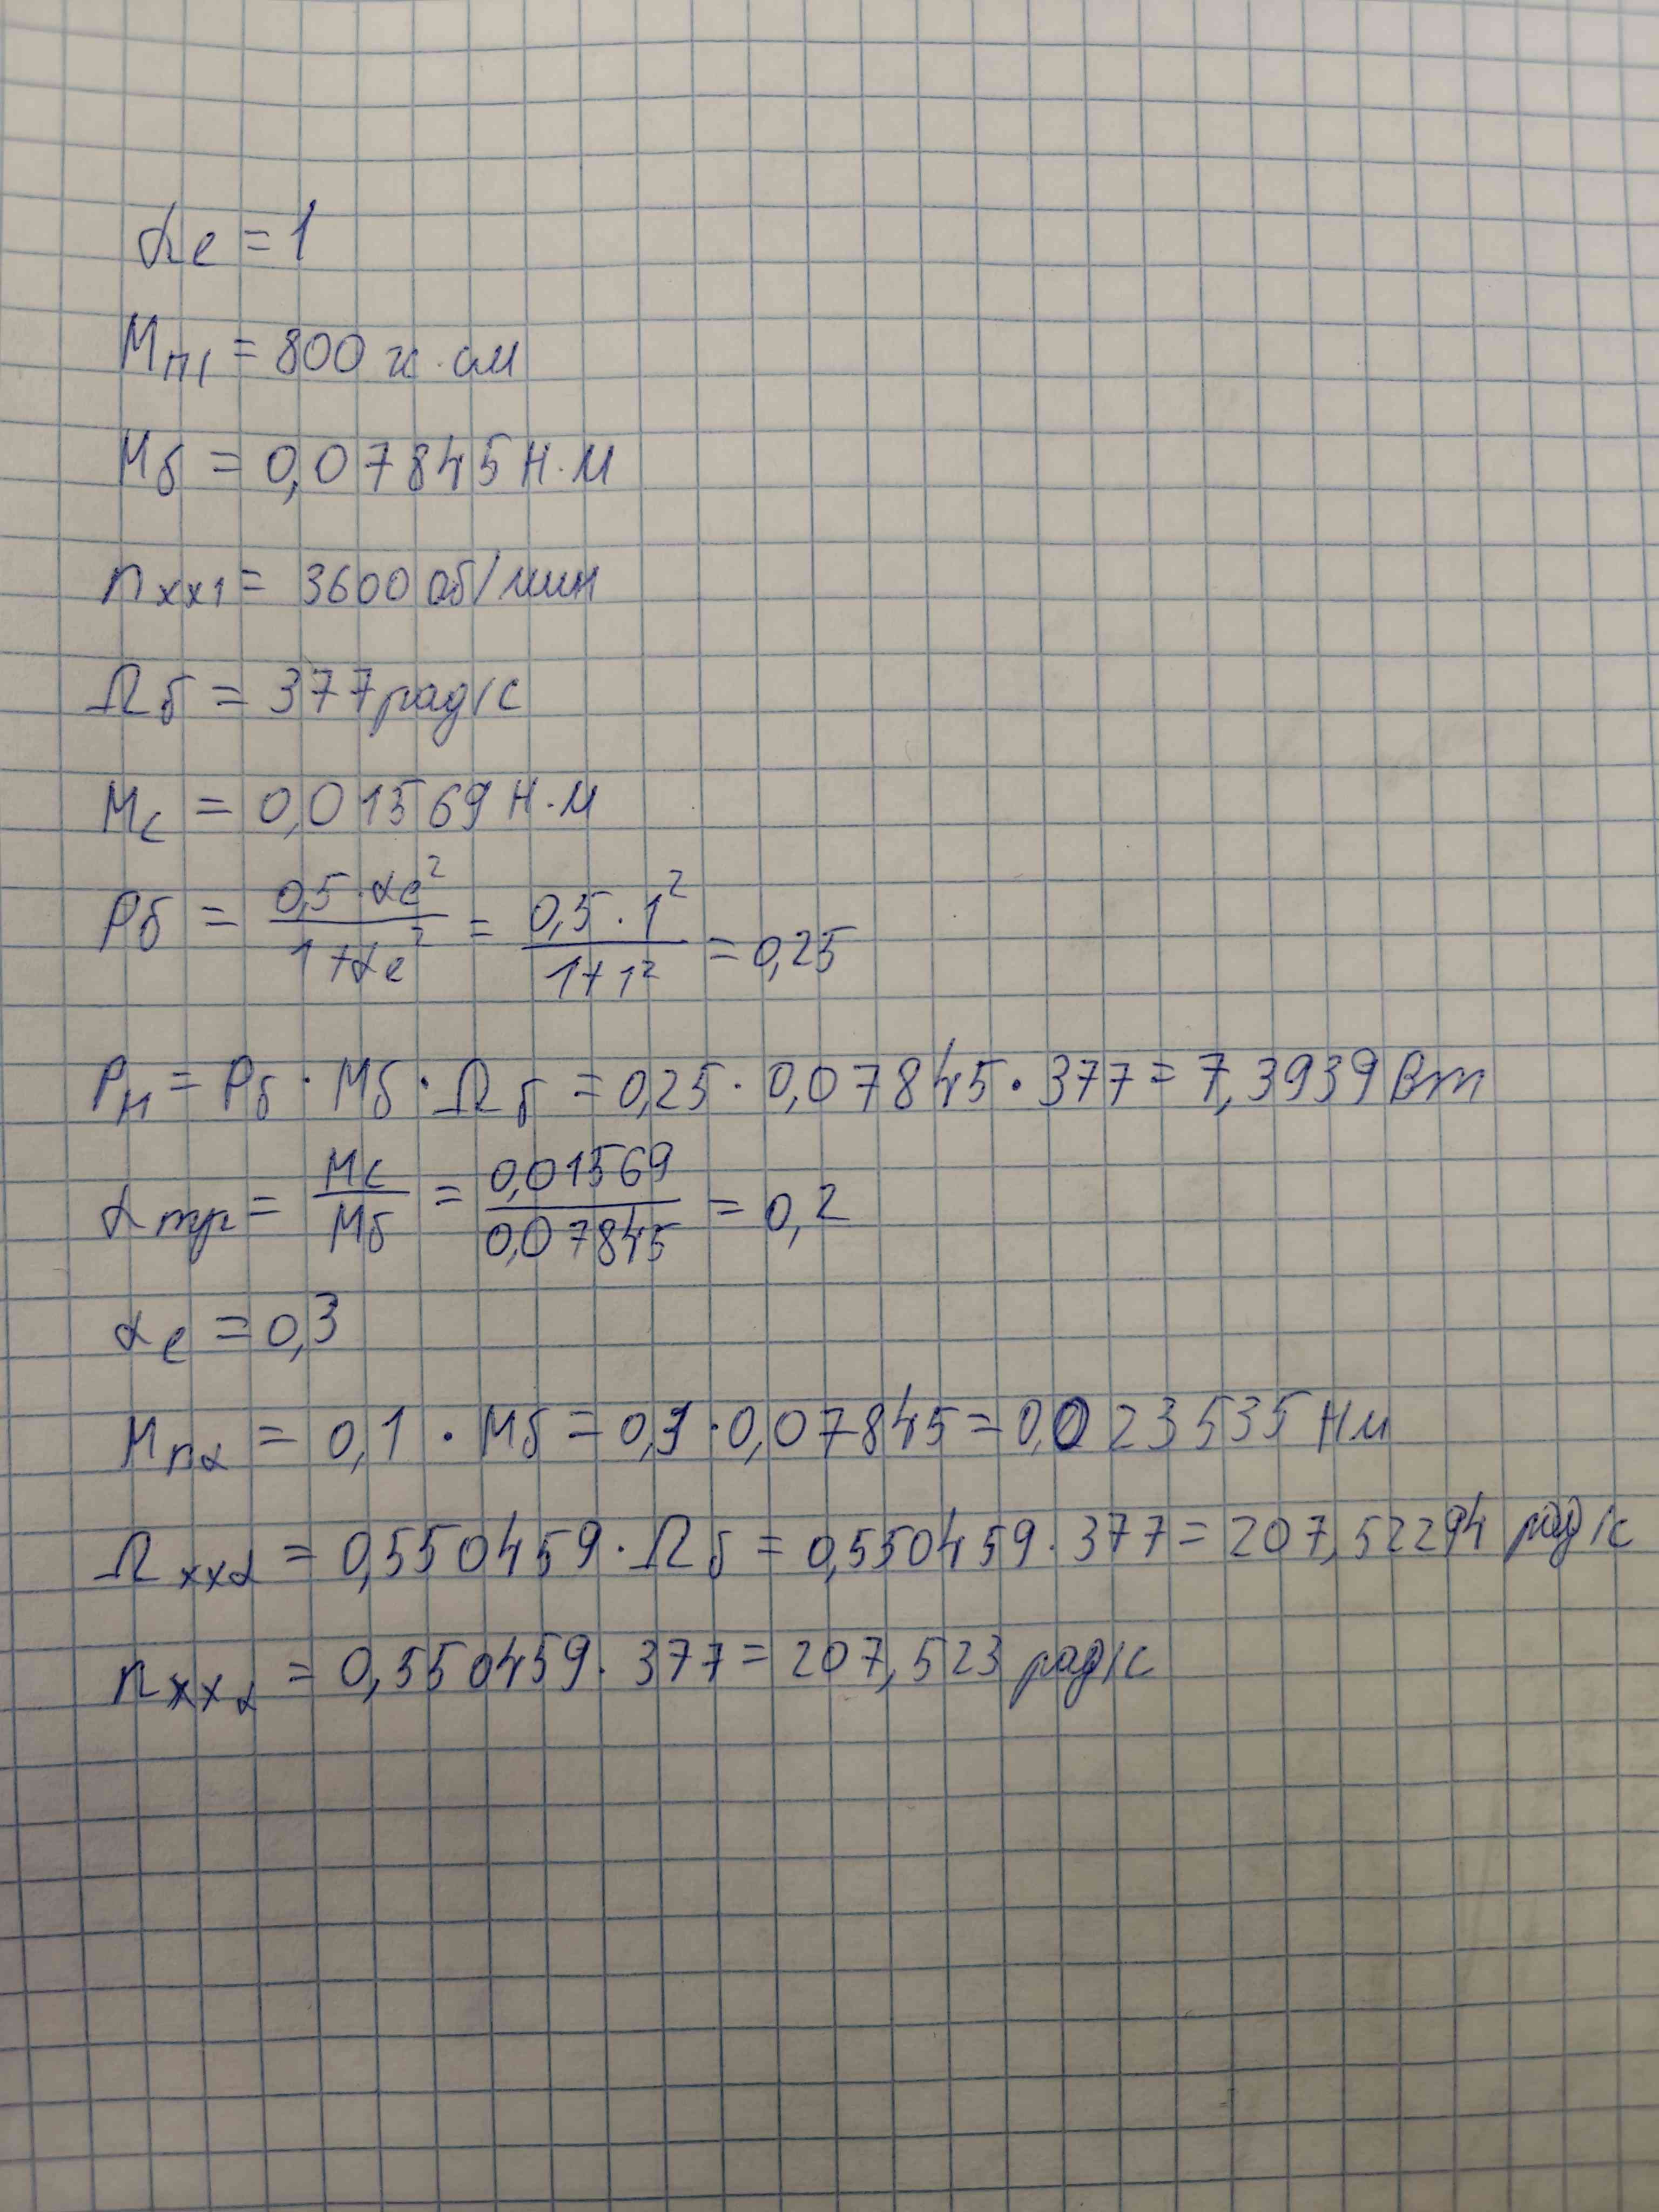 αe = 1
Mп1 = 800 гс·см
Mб = 0,07845 Н·м
nхх1 = 3600 об/мин
Ωб = 377 рад/с
Mс = 0,01569 Н·м
Pб = 0,5·αe² / 1+αe² = 0,5·1² / 1+1² = 0,25
Pн = Pб · Mб · Ωб = 0,25 · 0,07845 · 377 = 7,3939 Вт
αтр = Mс / Mб = 0,01569 / 0,07845 = 0,2
αe = 0,3
Mпα = 0,1 · Mб = 0,3 · 0,07845 = 0,023535 Нм
Ωххα = 0,550459 · Ωб = 0,550459 · 377 = 207,52294 рад/с
nххα = 0,550459 · 377 = 207,523 рад/с